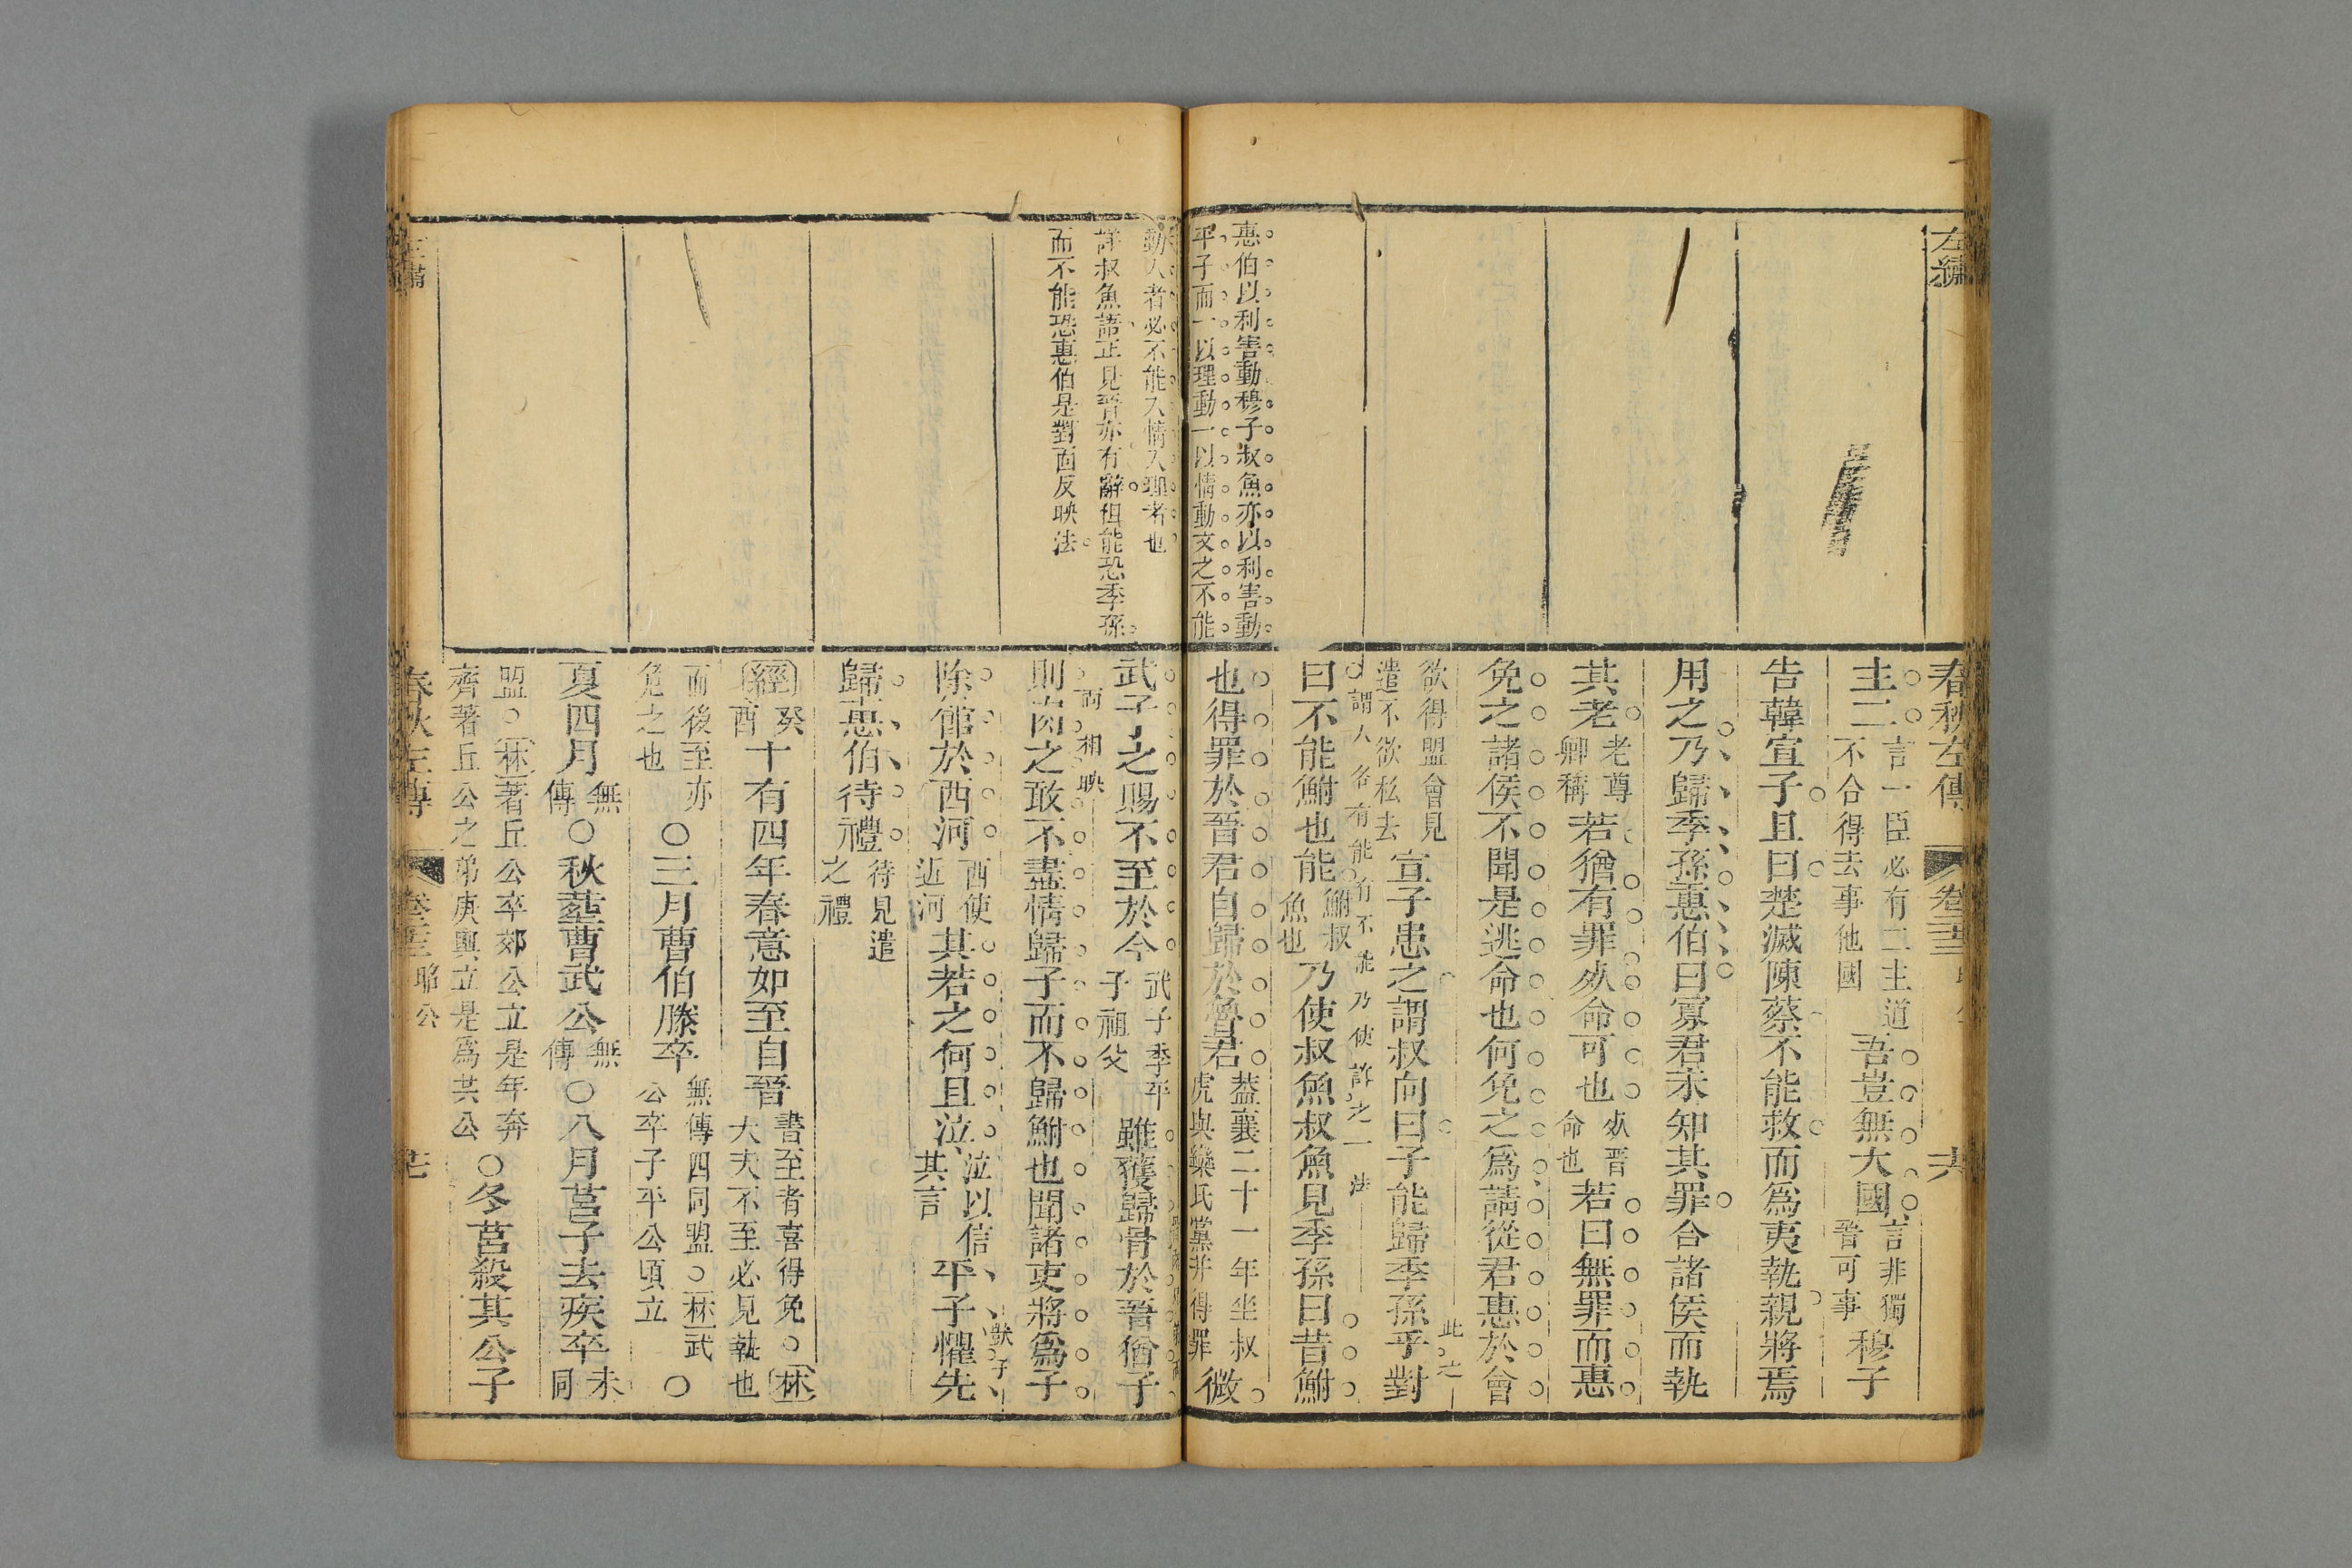 左繡
春秋左傳
主二言一臣必有二主道不合得去事他國吾豈無大國言非獨晉可事穆子
告韓宣子且曰楚滅陳蔡不能救而為夷執親將焉
用之乃歸季孫惠伯曰寡君未知其罪合諸侯而執
其老老尊卿稱若猶有罪死命可也死晉命也若曰無罪而惠
免之諸侯不聞是逃命也何免之為請從君惠於會
欲得盟會見遣不欲私去宣子患之謂叔向曰子能歸季孫乎對
謂人各有能有不能乃使詐之一法
曰不能鮒也能鮒叔魚也乃使叔魚叔魚見季孫曰昔鮒
也得罪於晉君自歸於魯君蓋襄二十一年坐叔虎與欒氏黨并得罪微
惠伯以利害動穆子叔魚亦以利害動
平子而一以理動一以情動文之不能
動人者必不能入情入理者也
詳叔魚語正見晉亦有辭但能恐季孫
而不能恐惠伯是對面反映法
武子之賜不至於今武子季平子祖父雖獲歸骨於晉猶子
兩相映
則肉之敢不盡情歸子而不歸鮒也聞諸吏將為子
除館於西河西使近河其若之何且泣泣以信其言平子懼先
歸惠伯待禮待見遣之禮
經癸酉十有四年春意如至自晉書至者喜得免○林大夫不至必見執也
而後至亦免之也○三月曹伯滕卒無傳四同盟○林武公卒子平公頃立○
夏四月無傳○秋葬曹武公無傳○八月莒子去疾卒未同
盟○林著丘公卒郊公立是年奔齊著丘公之弟庚輿立是為共公○冬莒殺其公子
春秋左傳
昭公